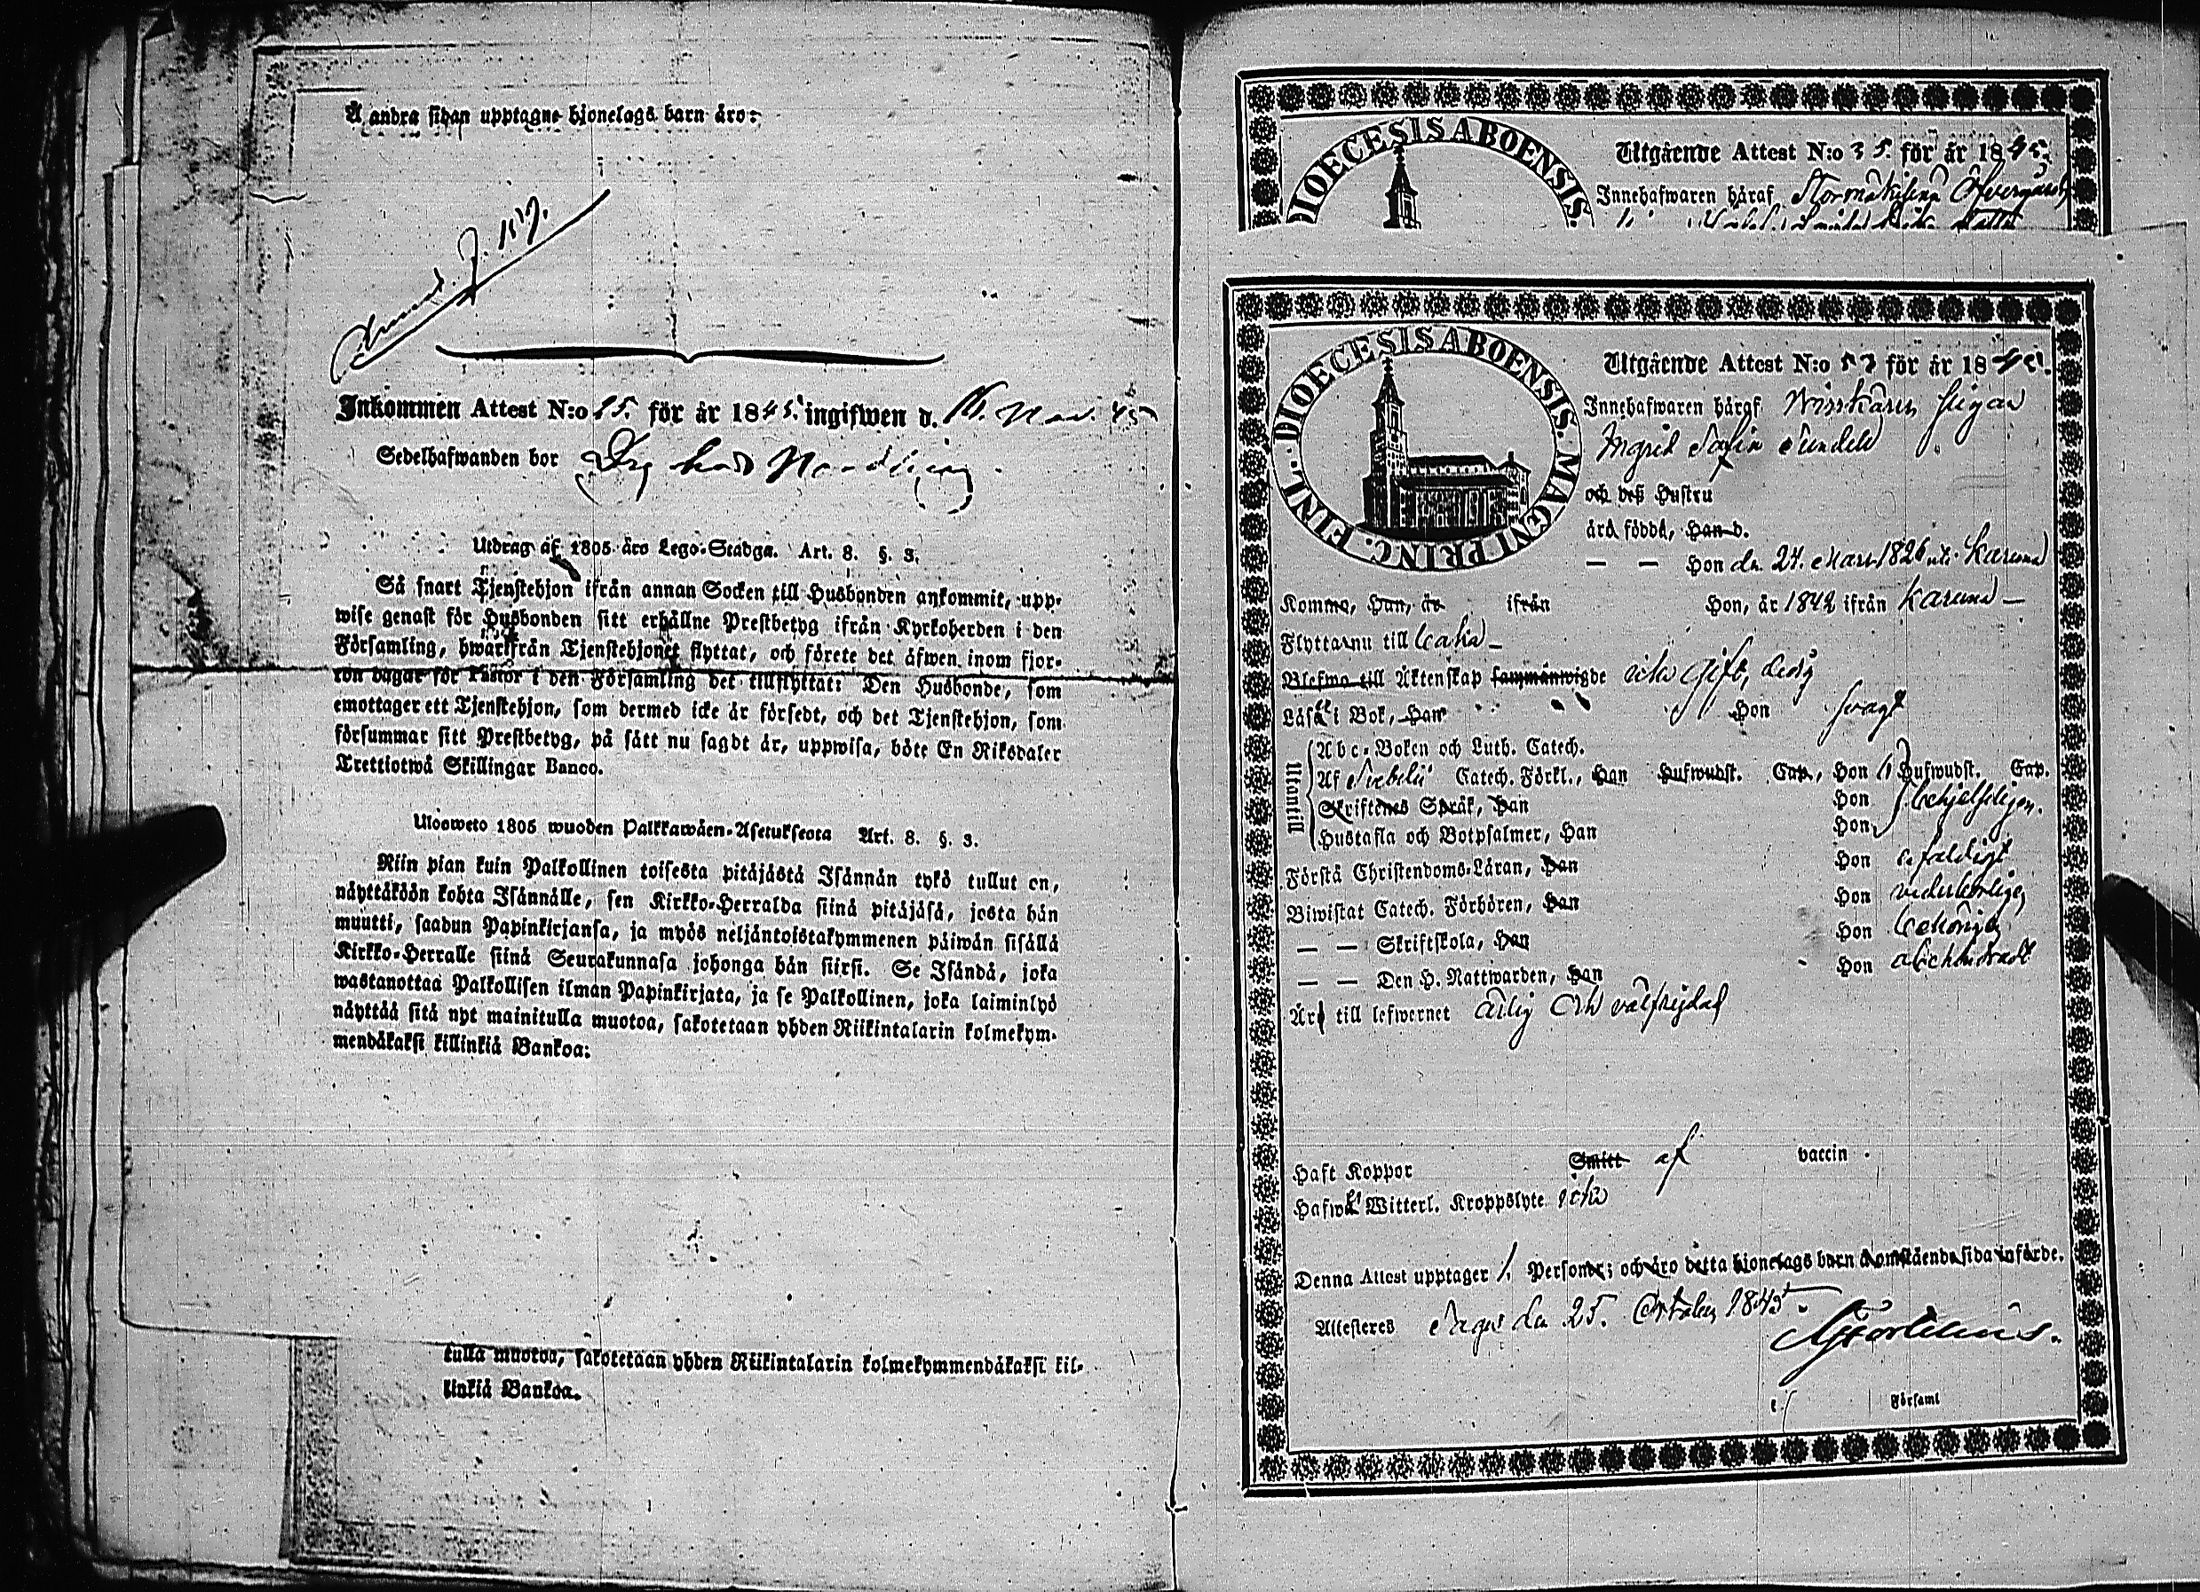 Å andra sidan upptagne hjonelags barn äro:
Inkommen Attest N:o 15. för år 1845. ingifwen d. 16. Nov. 45
Sedelhafwanden bor
Utdrag af 1805 års Lego-Stadga. Art. 8. §. 3.
Så snart Tjenstehjon ifrån annan Socken till Husbonden ankommit, upp-
wise genast för Husbonden sitt erhållne Prestbetyg ifrån Kyrkoherden i den
Församling, hwarifrån Tjenstehjonet flyttat, och förete det äfwen inom fjor-
ton dagar för Pastor i den Församling det tillflyttat: Den Husbonde, som
emottager ett Tjenstehjon, som dermed icke är försedt, och det Tjenstehjon, som
försummar sitt Prestbetyg, på sätt nu sagdt är, uppwisa, böte En Riksdaler
Trettiotwå Skillingar Banco.
Ulosweto 1805 wuoden Palkkawäen-Asetuksesta Art. 8. §. 3.
Niin pian kuin Palkollinen toisesta pitäjästä Isännän tykö tullut on,
näyttäköön kohta Isännälle, sen Kirkko-Herralda siinä pitäjäsä, josta hän
muutti, saadun Papinkirjansa, ja myös neljäntoistakymmenen päiwän sisällä
Kirkko-Herralle siinä Seurakunnasa johonga hän siirsi. Se Isändä, joka
wastanottaa Palkollisen ilman Papinkirjata, ja se Palkollinen, joka laiminlyö
näyttää sitä nyt mainitulla muotoa, sakotetaan yhden Riikintalarin kolmekym-
mendäkaksi killinkiä Bankoa:
tulla muotoa, sakotetaan yhden Riikintalarin kolmekymmendäkaksi kil-
linkiä Bankoa.
DIOECESIS ABOENSIS.
Utgående Attest N:o 35. för år 1845.
Innehafwaren häraf
DIOECESIS ABOENSIS. MAGNI PRINC. FINL.
Utgående Attest N:o 57 för år 1845.
Innehafwaren häraf pigan
Ingrid Sofia Sundell
och dess Hustru
äro födda, Han d.
— — Hon den 24. Mars 1826 uti Karuna
Komne, Han, år ifrån Hon, år 1842 ifrån Karuna —
Flyttar nu till
Blefwo till Äktenskap sammanwigde icke gift, ledig
Läsa i Bok, Han Hon svagt
Utantill
Abc-Boken och Luth. Catech.
Af Svebelii Catech. Förkl., Han Hufwudst. Cap., Hon Hufwudst. Cap.
Skriftenes Språk, Han Hon behjelpeligen.
Hustafla och Botpsalmer, Han Hon
Förstå Christendoms-Läran, Han Hon enfaldigt
Biwistat Catech. Förhören, Han Hon vederbörligen
— — Skriftskola, Han Hon behörigen
— — Den H. Nattwarden, Han Hon
Äro till lefwernet ärlig och välfrejdad
Haft Koppor Smitt af vaccin
Hafwa Witterl. Kroppslyte icke
Denna Attest upptager 1. Personer; och äro detta hjonelags barn å omstående sida införde.
Attesteres Sagu den 25. October 1845.
Församl